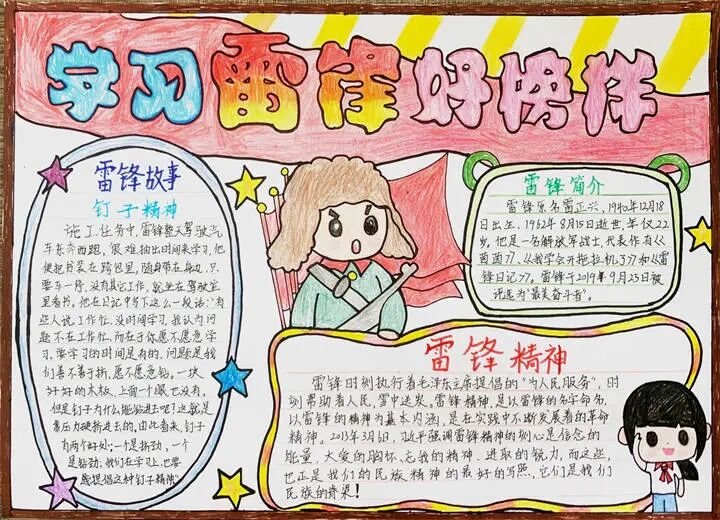 学习雷锋好榜样
雷锋故事
钉子精神
施工任务中,雷锋整天驾驶汽
车东奔西跑,很难抽出时间来学习,他
便把书装在挎包里,随身带在身边,只
要车一停,没有其它工作,就坐在驾驶室
里看书,他在日记中写下这么一段话:"有
些人说工作忙,没时间学习,我认为问
题不在工作忙,而在于你愿不愿意学
习,要学习的时间是有的,问题是我
们善不善于挤,愿不愿意钻,一块
好好的木板,上面一个眼也没有,
但是钉子为什么能钻进去呢?这就是
靠压力硬挤进去的,由此看来,钉子
有两个好处:一个是挤劲,一个
是钻劲,我们在学习上,也要
提倡这种"钉子精神"
雷锋简介
雷锋原名雷正兴,1940年12月18
日出生,1962年8月15日逝世,年仅22
岁,他是一名解放军战士,代表作有《
茵茵》,《我学会开拖拉机了》和《雷
锋日记》,雷锋于2019年9月25日被
评选为"最美奋斗者"。
雷锋精神
雷锋时刻执行着毛泽东主席提倡的"为人民服务",时
刻帮助着人民,雪中送炭。雷锋精神,是以雷锋的名字命名,
以雷锋的精神为基本内涵,是在实践中不断发展着的革命
精神,2013年3月6日,习近平强调雷锋精神的核心是信念的
能量、大爱的胸怀、忘我的精神、进取的锐力,而这些,
也正是我们的民族精神的最好的写照,它们是我们
民族的脊梁!